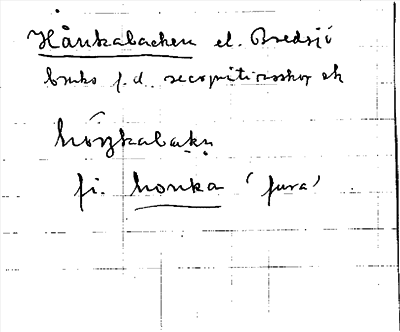 Hånkabacken el. Bredsjö
bruks f.d. recognitionsskog ek
håŋkabakn̥
fi. honka 'fura'